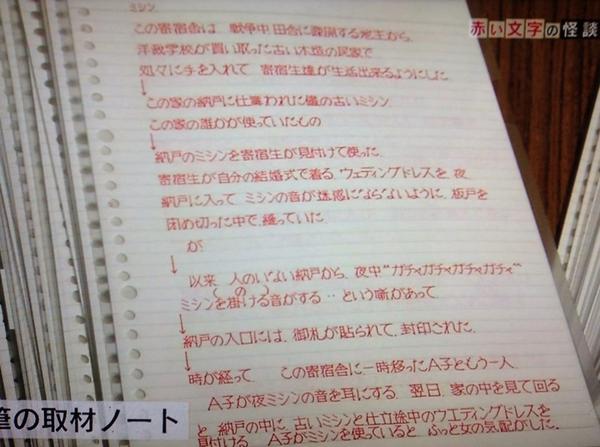 赤い文字の怪談
ミシン
この寄宿舎は、戦争中田舎に疎開する宅主から、
洋裁学校が買い取った古い木造の民家で
処々に手を入れて 寄宿生達が生活出来るようにした
↓
この家の納戸に仕舞われた儘の古いミシン
この家の誰かが使っていたもの
↓
納戸のミシンを寄宿生が見付けて使った
寄宿生が自分の結婚式で着る、ウェディングドレスを、夜
納戸に入って ミシンの音が迷惑にならないように、板戸を
閉め切った中で、縫っていた
が
↓
以来 人のいない納戸から、夜中"ガチャガチャガチャガチャ"
ミシンを掛ける音がする‥という噺があって
↓
納戸の入口には、御札が貼られて、封印された。
↓
時が経って この寄宿舎に一時移ったA子ともう一人
A子が夜ミシンの音を耳にする 翌日、家の中を見て回る
と 納戸の中に、古いミシンと仕立途中のウエディングドレスを
見付ける A子がミシンを使っていると ふっと女の気配がした。
筆の取材ノート